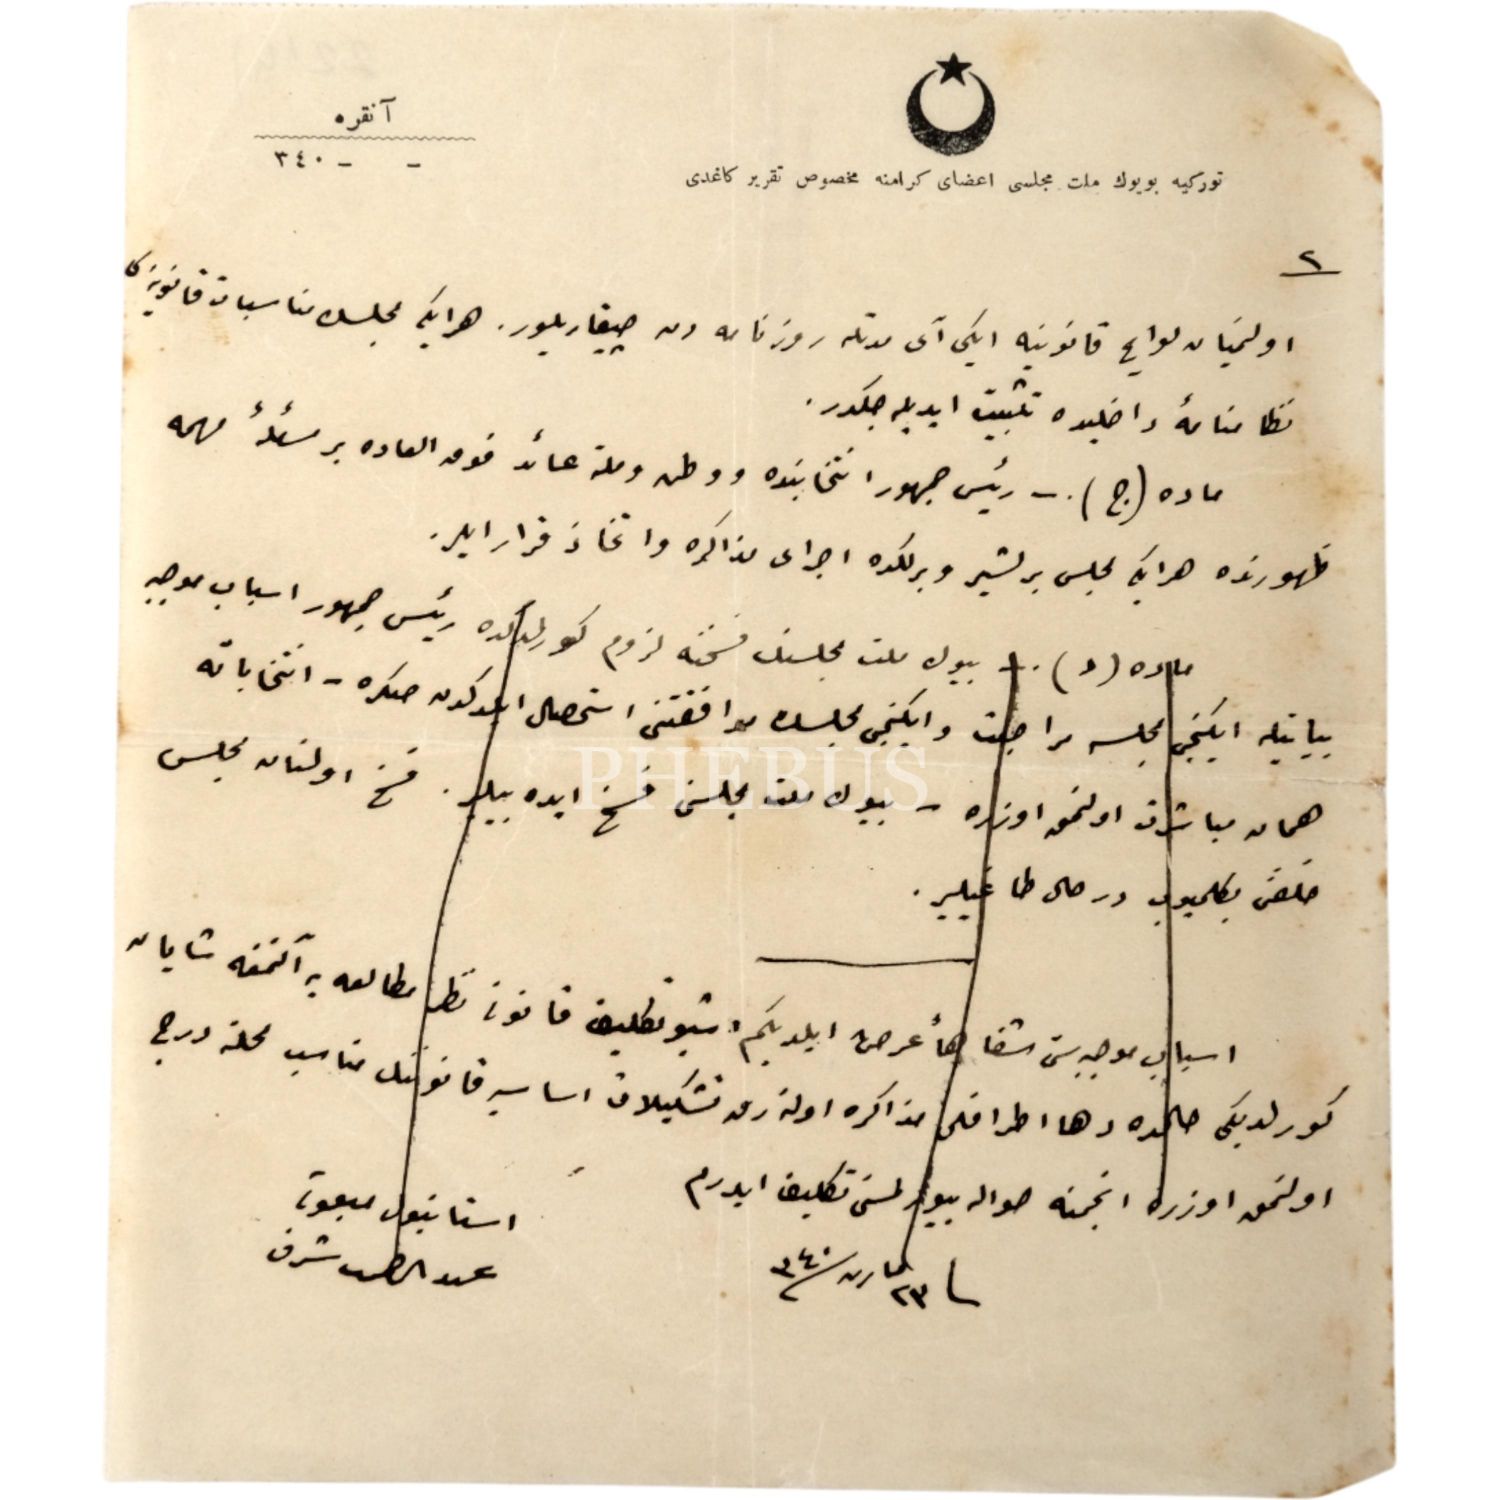 آنقره
- - ٣٤٠
توركيه بويوك ملت مجلسى اعضاى كرامنه مخصوص تقرير كاغدى
٢
اولنميان لوايح قانونيه ايكى آى مدتله روزنامه دن چيقاريلور. هر ايكى مجلسك مناسبات قانونيه
نظامنامۀ داخليده تثبيت ايديله جكدر.
ماده (ج). — رئيس جمهور انتخابنده و وطن و ملته عائد فوق العاده بر مسئلۀ مهمه
ظهورنده هر ايكى مجلس برلشير و برلكده اجراى مذاكره و اتخاذ قرار ايلر.
ماده (د). — بيوك ملت مجلسنك فسخنه لزوم كورلدكده رئيس جمهور اسباب موجبه
بيانيله ايكنجى مجلسه مراجعت و ايكنجى مجلسك موافقتنى استحصال ايتدكدن صكره - انتخاباته
همان مباشرت اولنمق اوزره - بيوك ملت مجلسنى فسخ ايده بيلير. فسخ اولنان مجلس
خلفنى بكلميوب در حال طاغيلير.
اسباب موجبه سنى شفاهاً عرض ايلديكم اشبو تكليف قانونى نظر مطالعه يه آلنمغه شايان
كورلديكى حالده دها اطرافلى مذاكره اولنه رق تشكيلات اساسيه قانوننك مناسب محلنه درج
اولنمق اوزره انجمنه حواله بيورلمسنى تكليف ايدرم
٢٣ مارت ٣٤٠
استانبول مبعوثى
عبدالرحمن شرف
PHEBUS